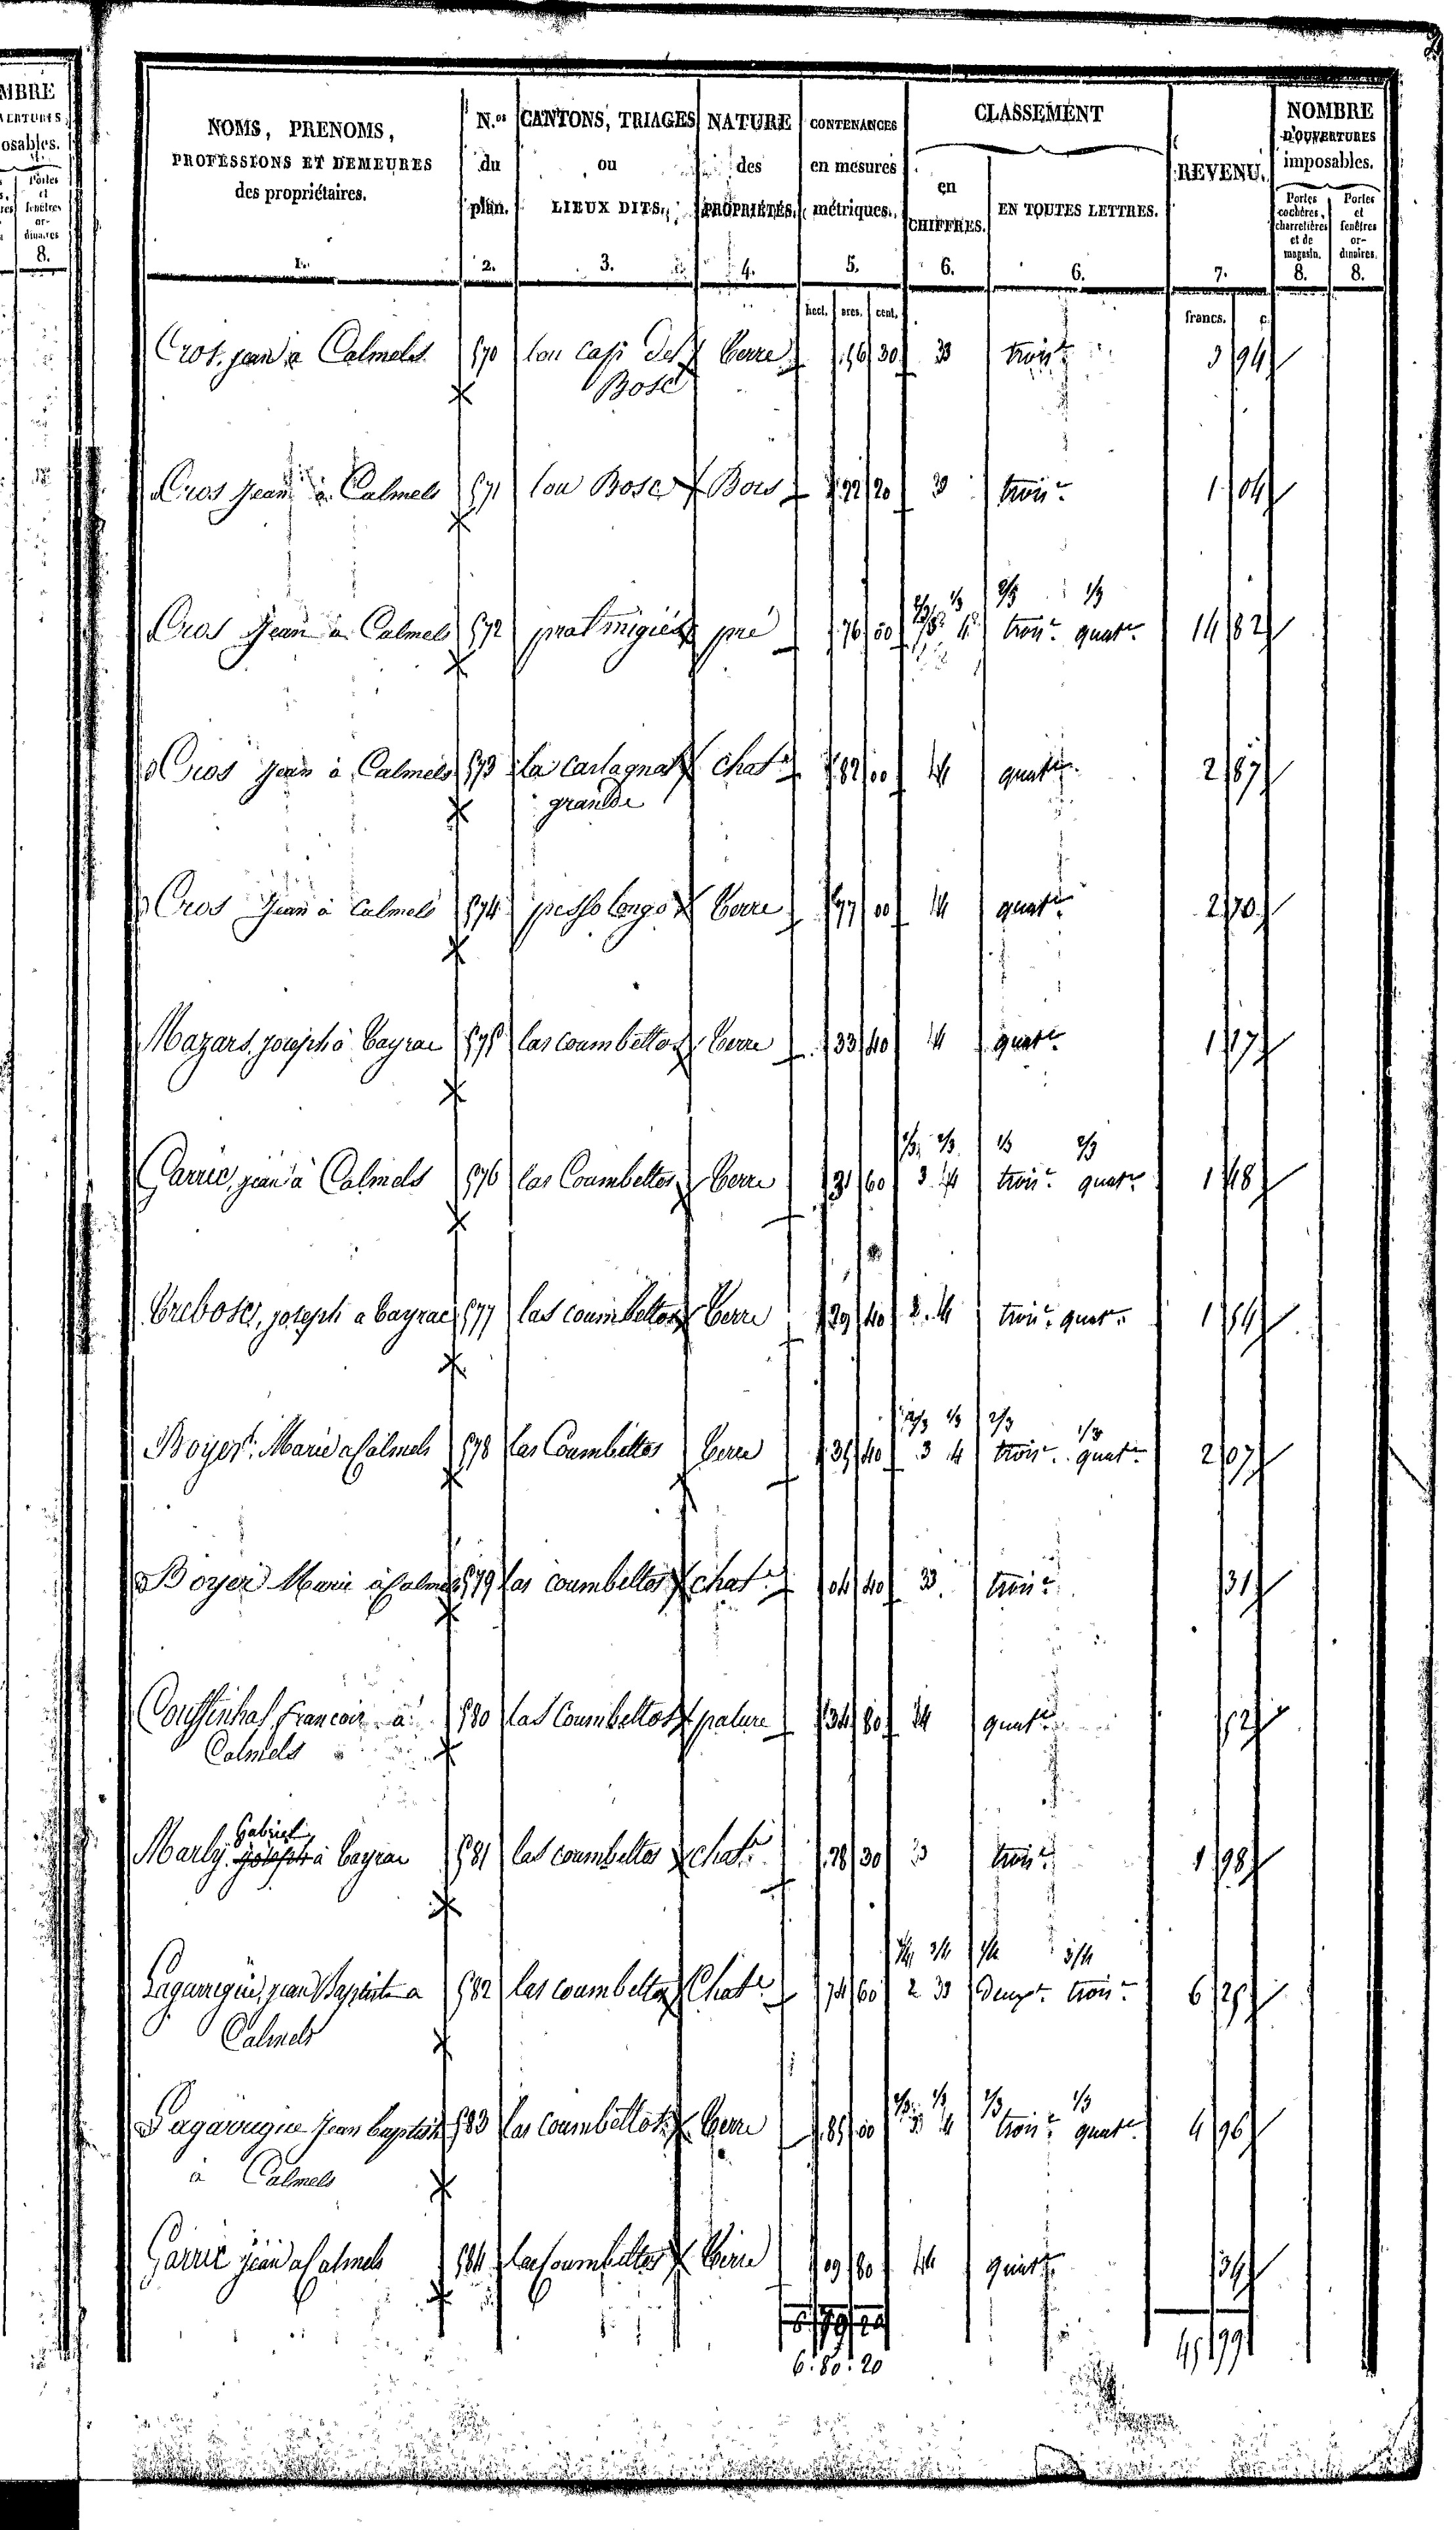 MBRE
VERTURES
osables.
Portes
et
fenêtres
or-
dinaires
8.
NOMS, PRENOMS,
PROFESSIONS ET DEMEURES
des propriétaires.
1.
N.os
du
plan.
2.
CANTONS, TRIAGES
ou
LIEUX DITS.
3.
NATURE
des
PROPRIÉTÉS.
4.
CONTENANCES
en mesures
métriques.
5.
CLASSEMENT
en
CHIFFRES.
6.
EN TOUTES LETTRES.
6.
REVENU.
7.
NOMBRE
D'OUVERTURES
imposables.
Portes
cochères,
charretières
et de
magasin.
8.
Portes
et
fenêtres
or-
dinaires.
8.
hect. ares. cent.
francs. c.
Cros jean à Calmels 570 lou cap del Terre 56 30 3 trois.e 3 94
Bosc
Cros Jean à Calmels 571 lou Bosc Bois 22 20 3 trois.e 1 04
2/3 1/3 2/3 1/3
Cros Jean à Calmels 572 prat pré 76 00 3 4 trois.e quat.e 14 82
Cros Jean à Calmels 573 la castagnal chat.e 82 00 4 quat.e 2 87
grande
Cros Jean à Calmels 574 pesso longo Terre 77 00 4 quat.e 2 70
Mazars joseph à Cayrac 575 las coumbettos Terre 33 40 4 quat.e 1 17
1/3 2/3 1/3 2/3
Garric jean à Calmels 576 las Coumbettos Terre 31 60 3 4 trois.e quat.e 1 48
Trebosc, joseph a Cayrac 577 las coumbettos Terre 29 40 3. 4 trois.e quat.e 1 54
2/3 1/3 2/3 1/3
Boyer Marie a Calmels 578 las Coumbettos Terre 35 40 3 4 trois.e quat.e 2 07
Boyer Marie à Calmels 579 las coumbettos chat.e 04 40 3 trois.e 31
Couffinhal francois à 580 las Coumbettos pature 34 80 4 quat.e 52
Calmels
Gabriel
Marly joseph à Cayrac 581 las coumbettos chat.e 28 30 3 trois.e 1 98
1/4 3/4 1/4 3/4
Lagarrigue, jean Baptiste a 582 las coumbettos Chat.e 74 60 2 3 deux.e trois.e 6 25
Calmels
2/3 1/3 2/3 1/3
Lagarrigue Jean baptiste 583 las coumbettos Terre 85 00 3 4 trois.e quat.e 4 96
à Calmels
Garric jean a Calmels 584 las Coumbettos Terre 09 80 4 quat.e 34
6 79 20 45 99
6:80:20